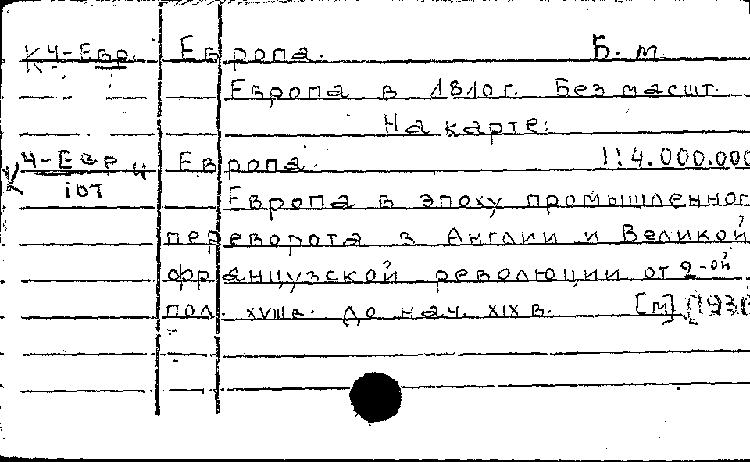 К4-Евр. Европа. Б. м.
Европа в 1810г. Без масшт.
На карте:
4-Евр Европа. 1:4.000.000
Европа в эпоху промышленног
переворота в Англии и Великой
французской революции от 2-ой
пол. XVIIIв. до нач. XIX в. [М] [193